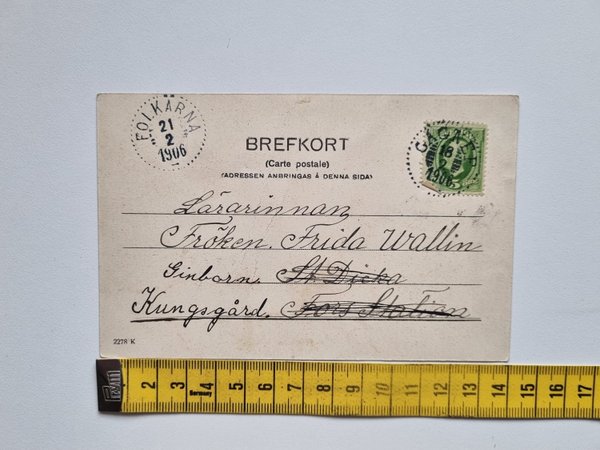 FOLKÄRNA
21
2
1906
BREFKORT
(Carte postale)
(ADRESSEN ANBRINGAS Å DENNA SIDA)
GAGNEF
1906
Lärarinnan
Fröken. Frida Wallin
St Dicka
Kungsgård. Fors Station
2278 K
2 3 4 5 6 7 8 9 10 11 12 13 14 15 16 17
Germany